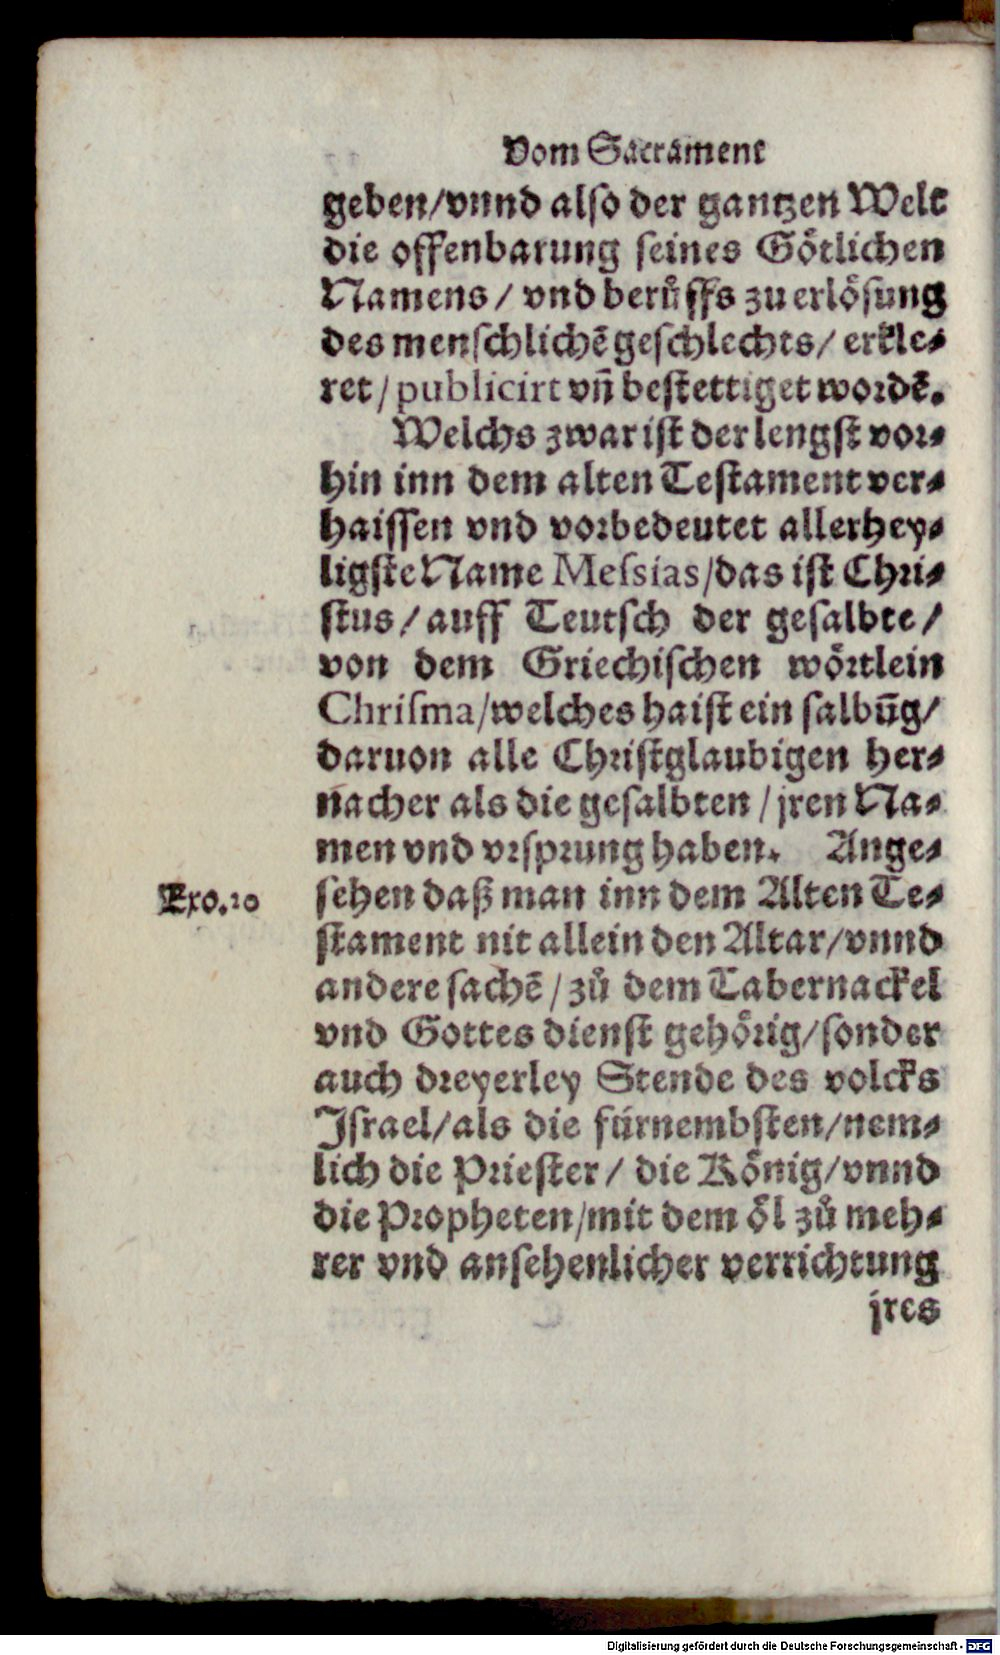 Vom Sacrament
geben/vnnd also der gantzen Welt
die offenbarung seines Götlichen
Namens / vnd berůffs zu erlösung
des menſchlichẽ geſchlechts/ erkle⸗
ret / publicirt vñ beſtettiget wordẽ.
Welchs zwar iſt der lengſt vor⸗
hin inn dem alten Teſtament ver⸗
haiſſen vnd vorbedeutet allerhey⸗
ligſte Name Meſsias/das iſt Chri⸗
ſtus / auff Teutſch der geſalbte /
von dem Griechiſchen wörtlein
Chriſma/welches haiſt ein ſalbũg/
daruon alle Chriſtglaubigen her⸗
nacher als die geſalbten / jren Na⸗
men vnd vrſprung haben. Ange⸗
Exo. 20
ſehen daß man inn dem Alten Te⸗
ſtament nit allein den Altar/vnnd
andere ſachẽ / zů dem Tabernackel
vnd Gottes dienſt gehörig/ſonder
auch dreyerley Stende des volcks
Jſrael/als die fürnembſten/nem⸗
lich die Prieſter / die König/vnnd
die Propheten/mit dem öl zů meh⸗
rer vnd anſehenlicher verrichtung
jres
Digitalisierung gefördert durch die Deutsche Forschungsgemeinschaft - DFG